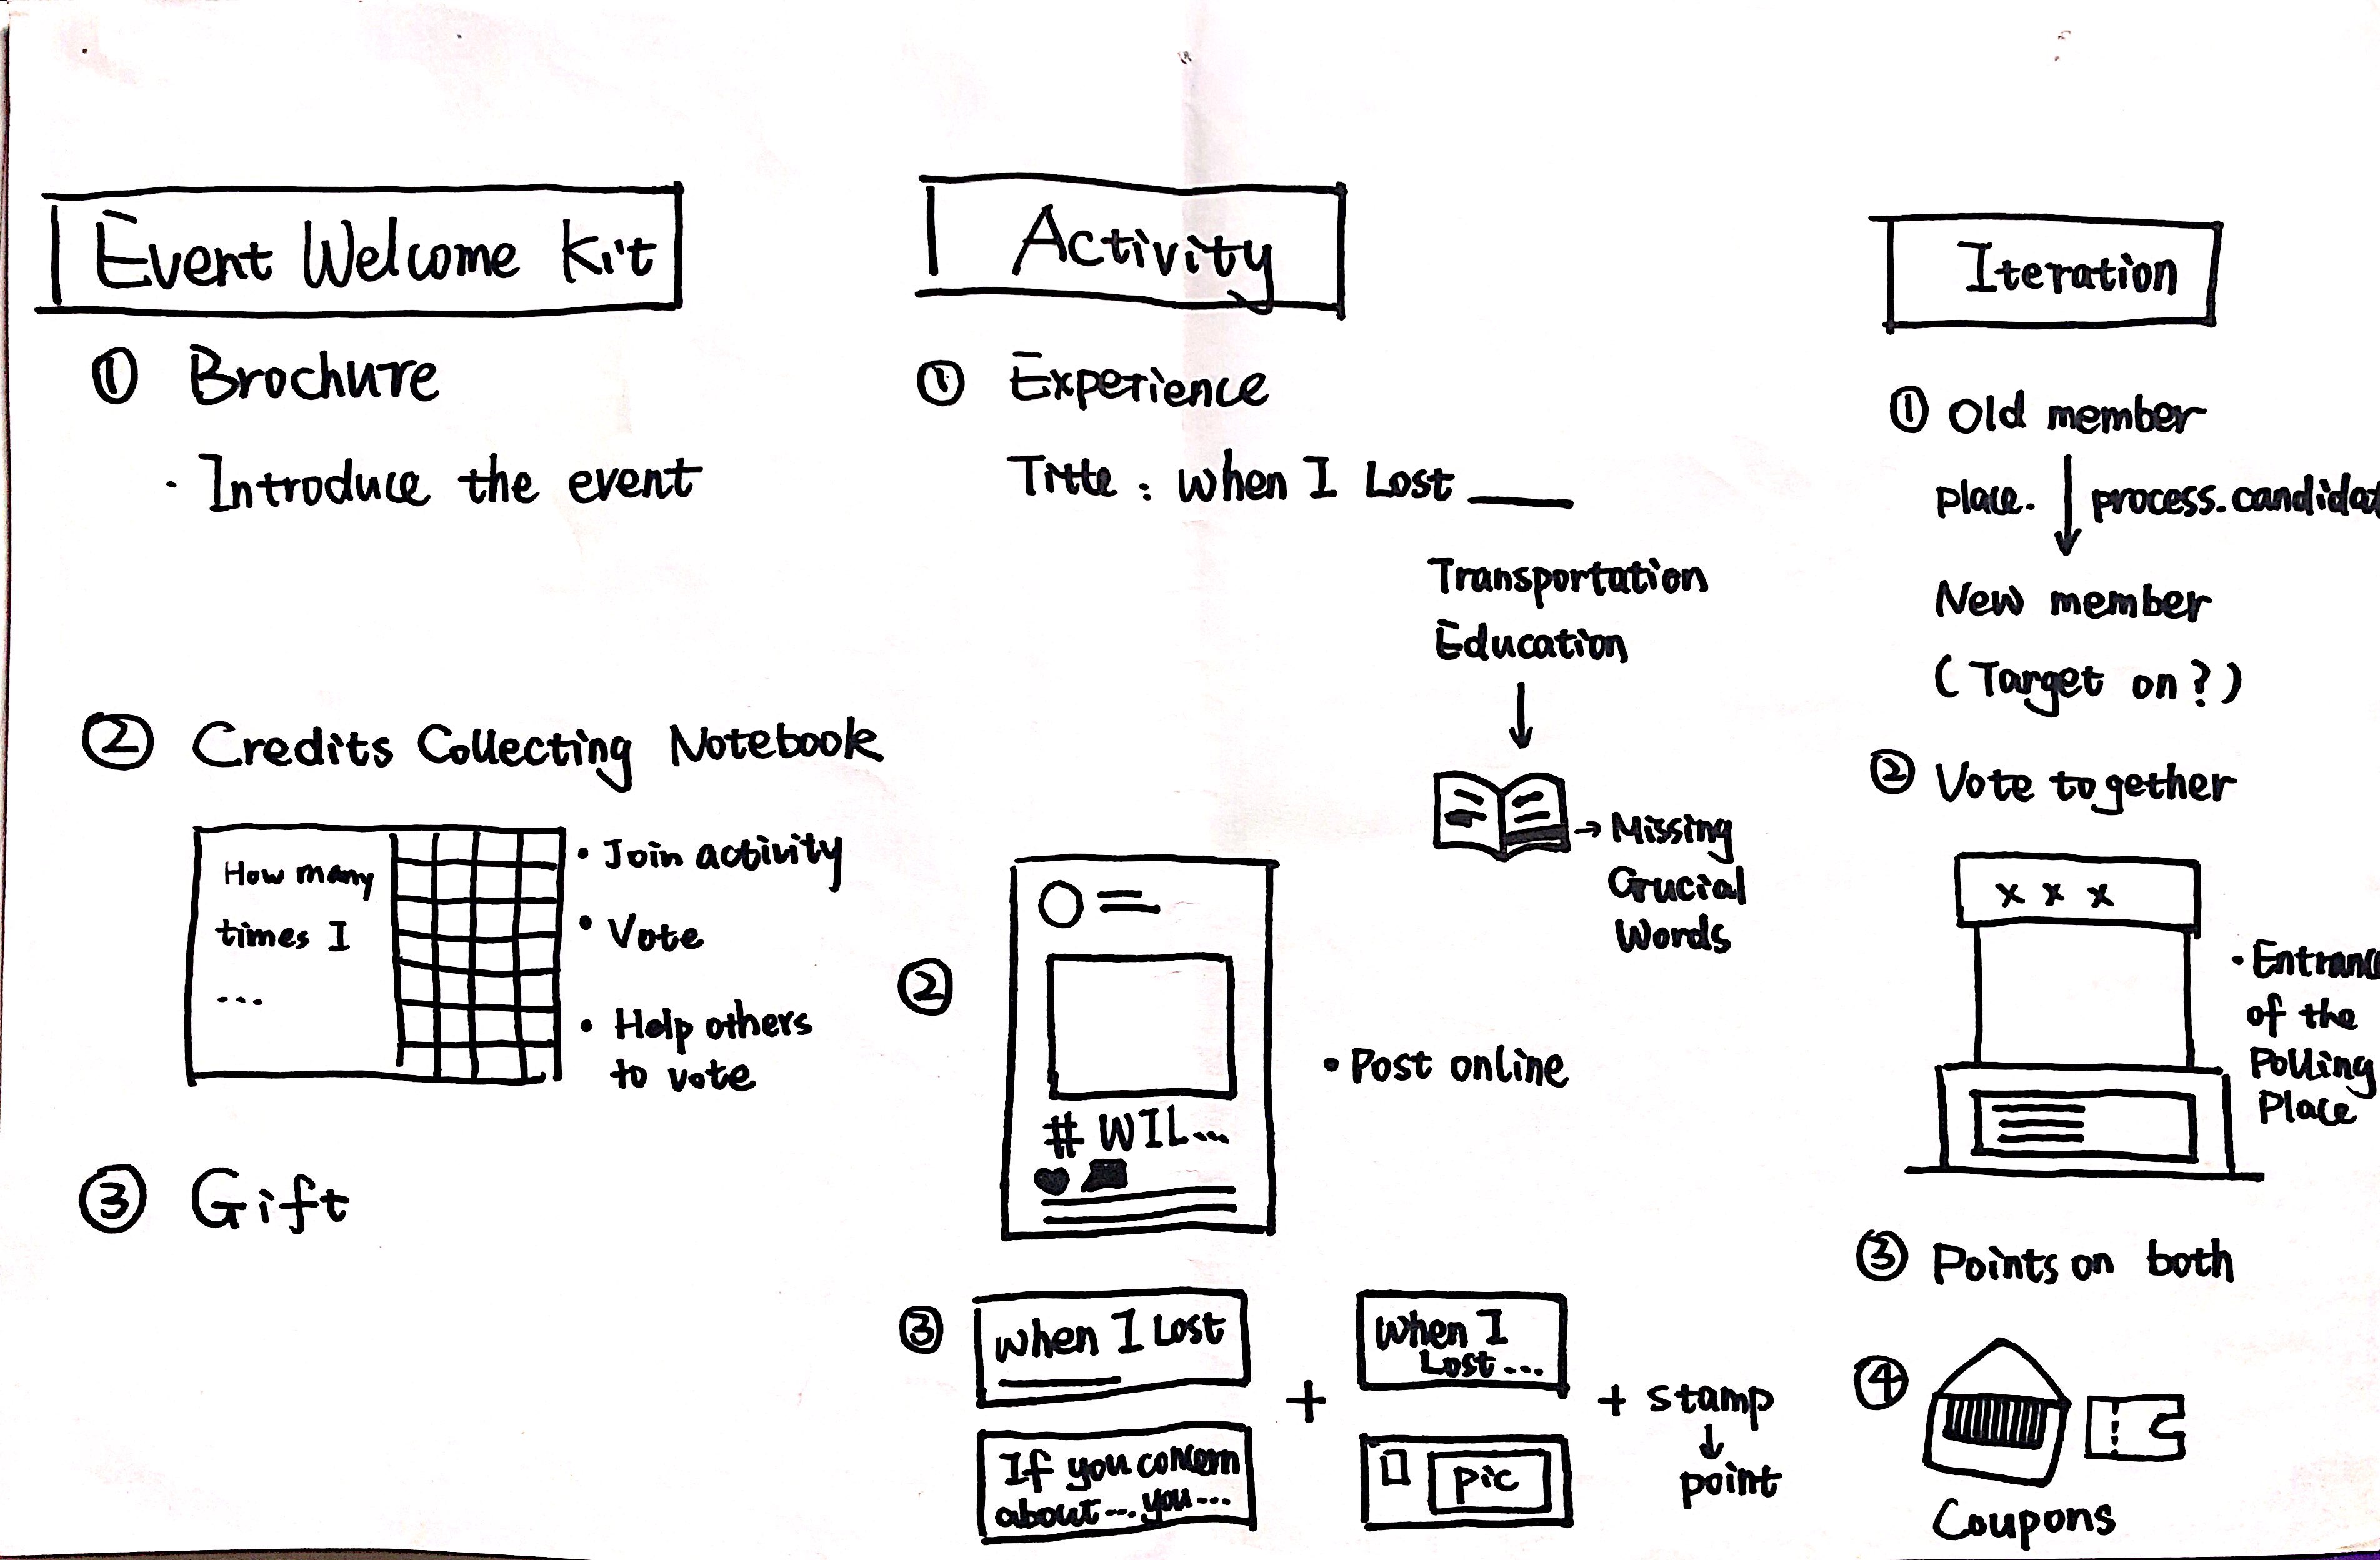 Event Welcome Kit
① Brochure
· Introduce the event
② Credits Collecting Notebook
How many
times I
...
· Join activity
· Vote
· Help others
to vote
③ Gift
Activity
① Experience
Title : When I Lost ____
Transportation
Education
↓
→ Missing
Crucial
Words
②
# WIL...
· Post online
③
When I Lost
____
If you concern
about ... you ...
+
When I
Lost ...
Pic
+ stamp
↓
point
Iteration
① Old member
place. ↓ process. candidat
New member
( Target on ? )
② Vote together
x x x
· Entranc
of the
Polling
Place
③ Points on both
④
Coupons